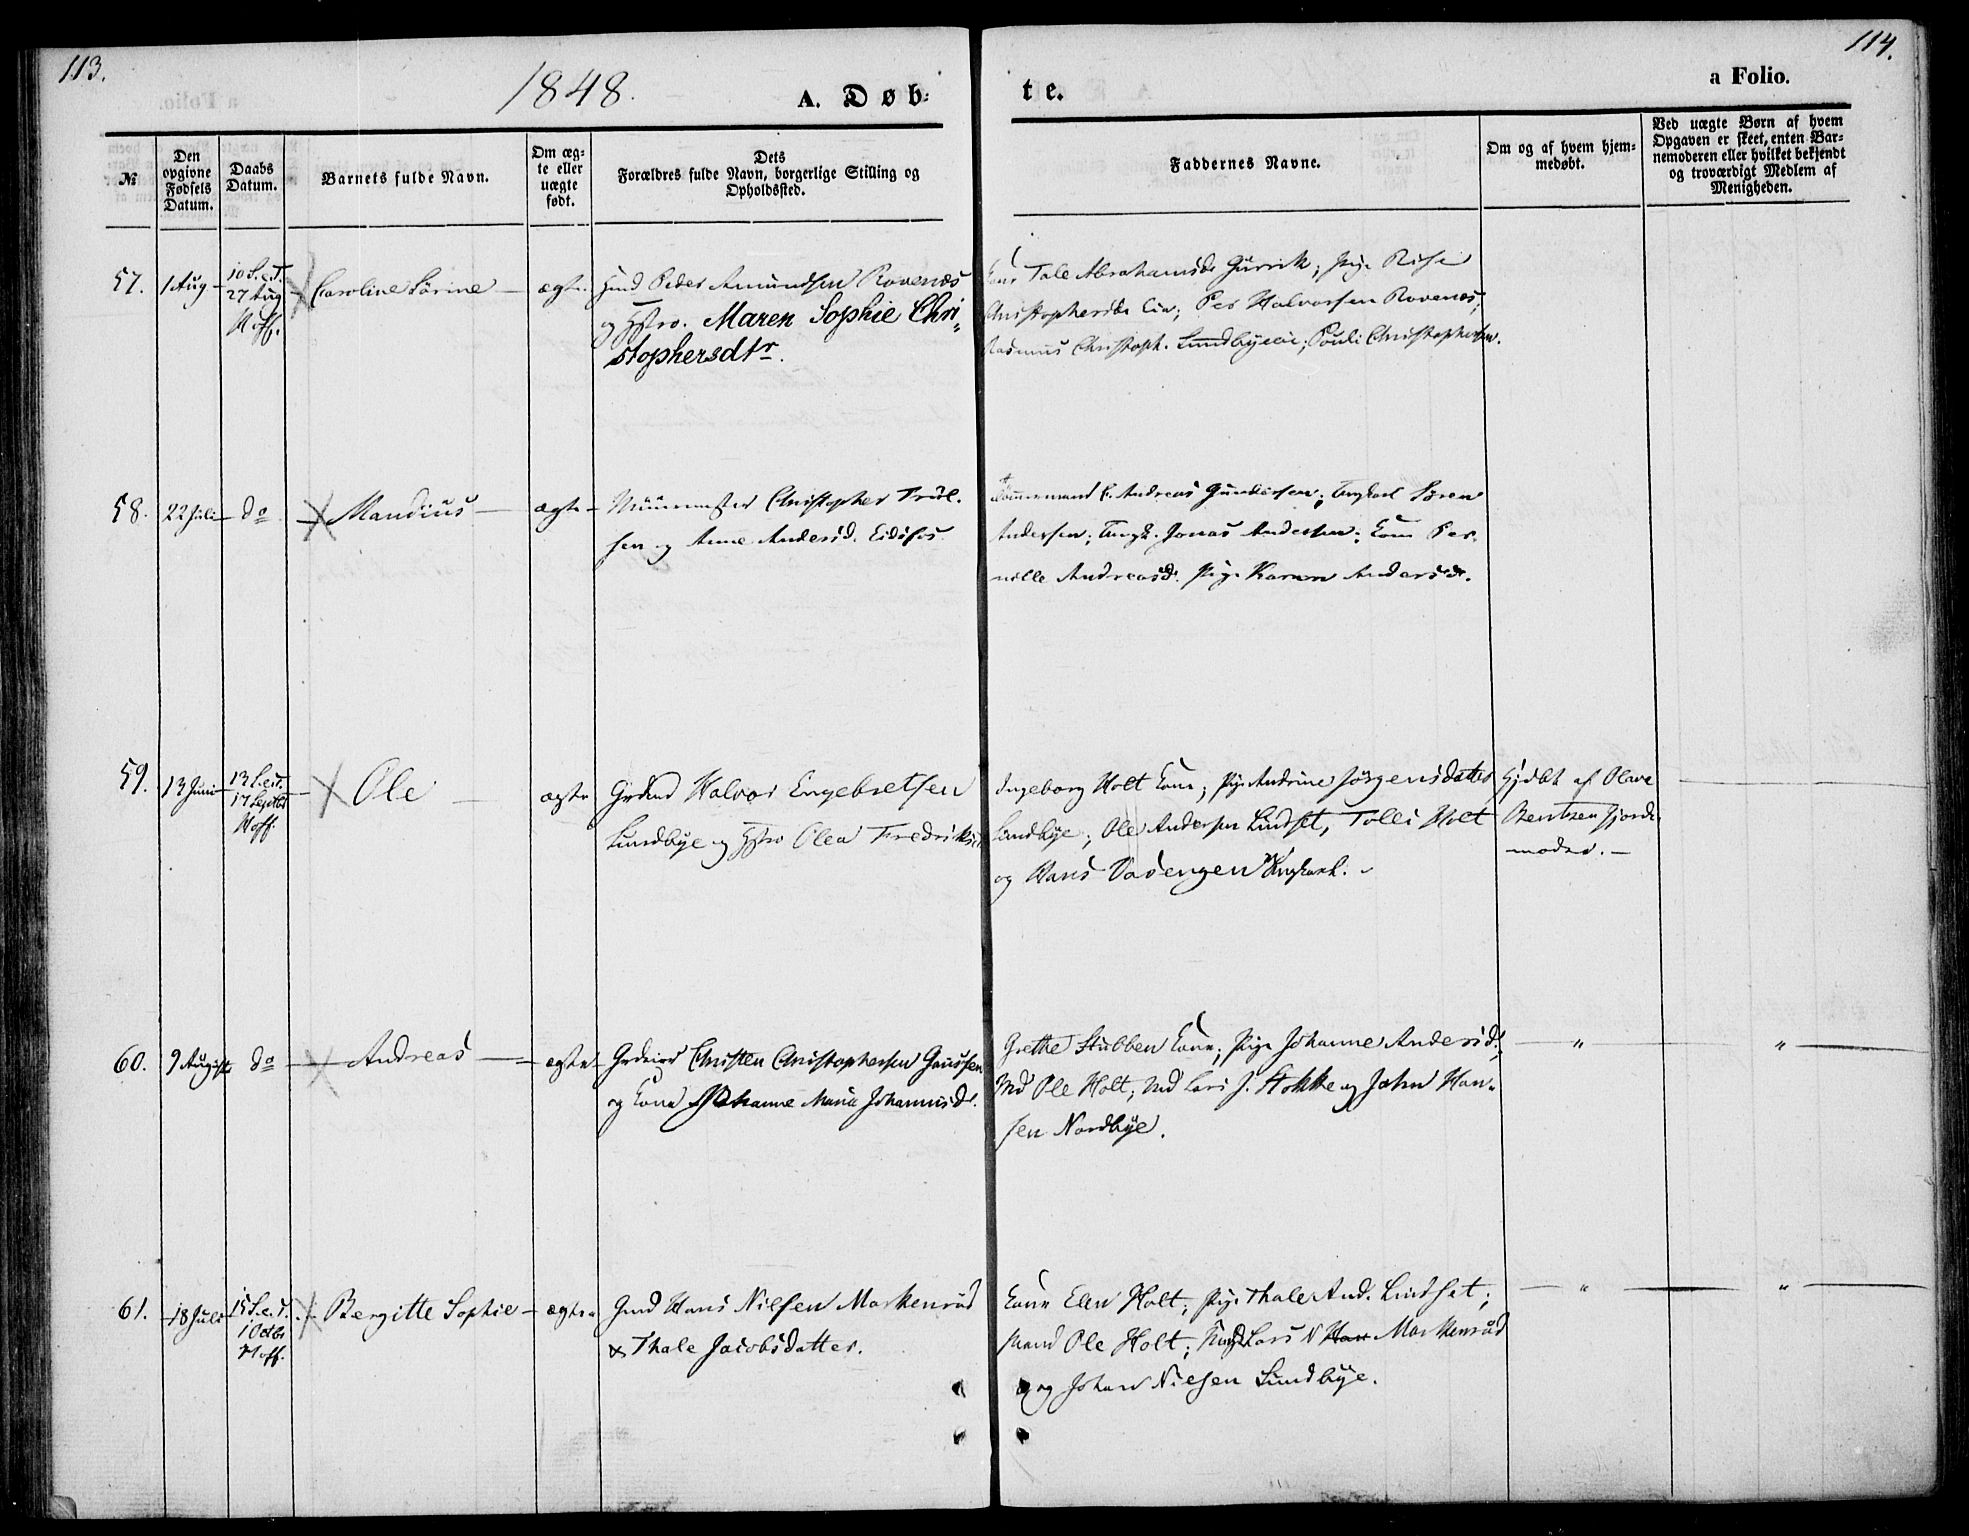 113.
1848.
A. Døb-
te.
a Folio.
114.
№
Den opgivne Fødsels Datum.
Daabs Datum.
Barnets fulde Navn.
Om ægte eller uægte født.
Dets Forældres fulde Navn, borgerlige Stilling og Opholdssted.
Faddernes Navne.
Om og af hvem hjemmedøbt.
Ved uægte Børn af hvem Opgaven er skeet, enten Barnemoderen eller hvilket bekjendt og troværdigt Medlem af Menigheden.
57.
1 Aug
10 S. e. T.
27 Aug
Hoff.
Caroline Sörine
ægte
Gmd Peder Amundsen Rovenæs
og Hstro. Maren Sophie Chri-
stophersdtr.
Kone Tale Abrahamsdr ; Pige
Christophersdr ; Per Halvorsen Rovenæs;
Rasmus Christoph. ; Pouli Christophersen.
58.
22 Juli
do
Mandius
ægte
Christopher Trul-
sen og Anne Andersd. Eidsfos.
Andreas Gundersen; Ungkarl Sören
Andersen; Ungk. Jonas Andersen; Kone Per-
nille Andreasdr. Pige Karen Andersdr.
59.
13 Juni
13 S. e. T.
17 Septbr
Hoff.
Ole
ægte
Halvor Engebretsen
Lundbye og Hstro Olea Fredriksd
Ingeborg Holt Kone; Pige Andrine Jörgensdatter
Lundbye; Ole Andersen Lindset, Tolli Holt
og Hans Vadengen Ungkarl.
Hjdbt af Olave
Bentzen Gjorde-
moder.
60.
9 August
do
Andreas
ægte
Christen Christophersen
og Kone Johanne Maria Johannisdr.
Grethe Stubben Kone; Pige Johanne Andersd.;
Md Ole Holt; Md Lars J. Stokke og John Han-
sen Nordbye.
"
"
61.
18 Juli
15 S. e. T.
1 Octbr
Hoff.
Bergitte Sophie
ægte
Gmd Hans Nilsen Markerud
& Thale Jacobsdatter.
Kone Elen Holt; Pige Thale And. Lindset;
Mand Ole Holt; Lars N Markerud
og Johan Nielsen Lundbye.
"
"